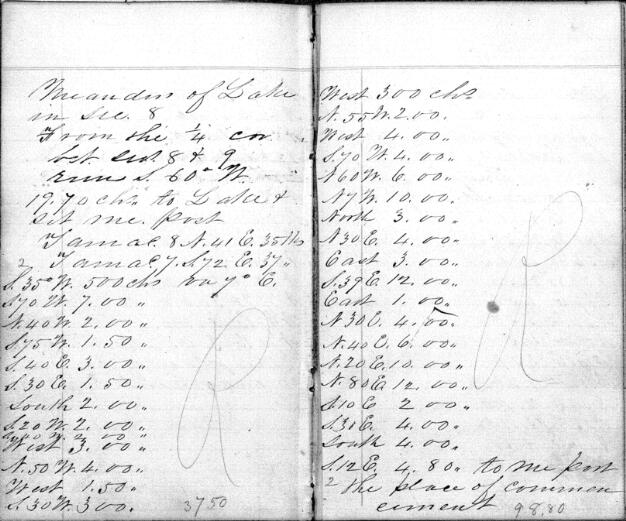 Meanders of Lake
in sec. 8
From the ¼ cor.
bet. secs 8 & 9
run S. 60° W.
19.70 chs to Lake &
set me. post
Tamac. 8 N. 41 E. 35 lks
2 Tamac. 7. S 72 E. 37 "
S. 35° W. 500 chs va 7° E.
S 70 W. 7.00 "
N. 40 W. 2.00 "
S 75 W. 1.50 "
S. 40 E. 3.00 "
S. 30 E. 1.50 "
South 2.00 "
S 20 W. 2.00 "
West 3.00 "
N. 50 W. 4.00 "
West 1.50 "
S 30 W. 300. 3750
R
West 300 chs
N. 55 W. 2.00.
West 4.00 "
S. 70 W. 4.00 "
N 60 W. 6.00 "
N 7 W. 10.00.
North 3.00 "
N 30 E. 4.00 "
East 3.00 "
S. 39 E. 12.00 "
East 1.00 "
N 30 E. 4.00 "
N. 40 E. 6.00 "
N. 20 E. 10.00 "
N. 80 E. 12.00 "
S. 10 E 2 00 "
S. 31 E. 4.00 "
South 4.00 "
S. 12 E. 4.80 " to me post
2 the place of commen
cement 98.80
R